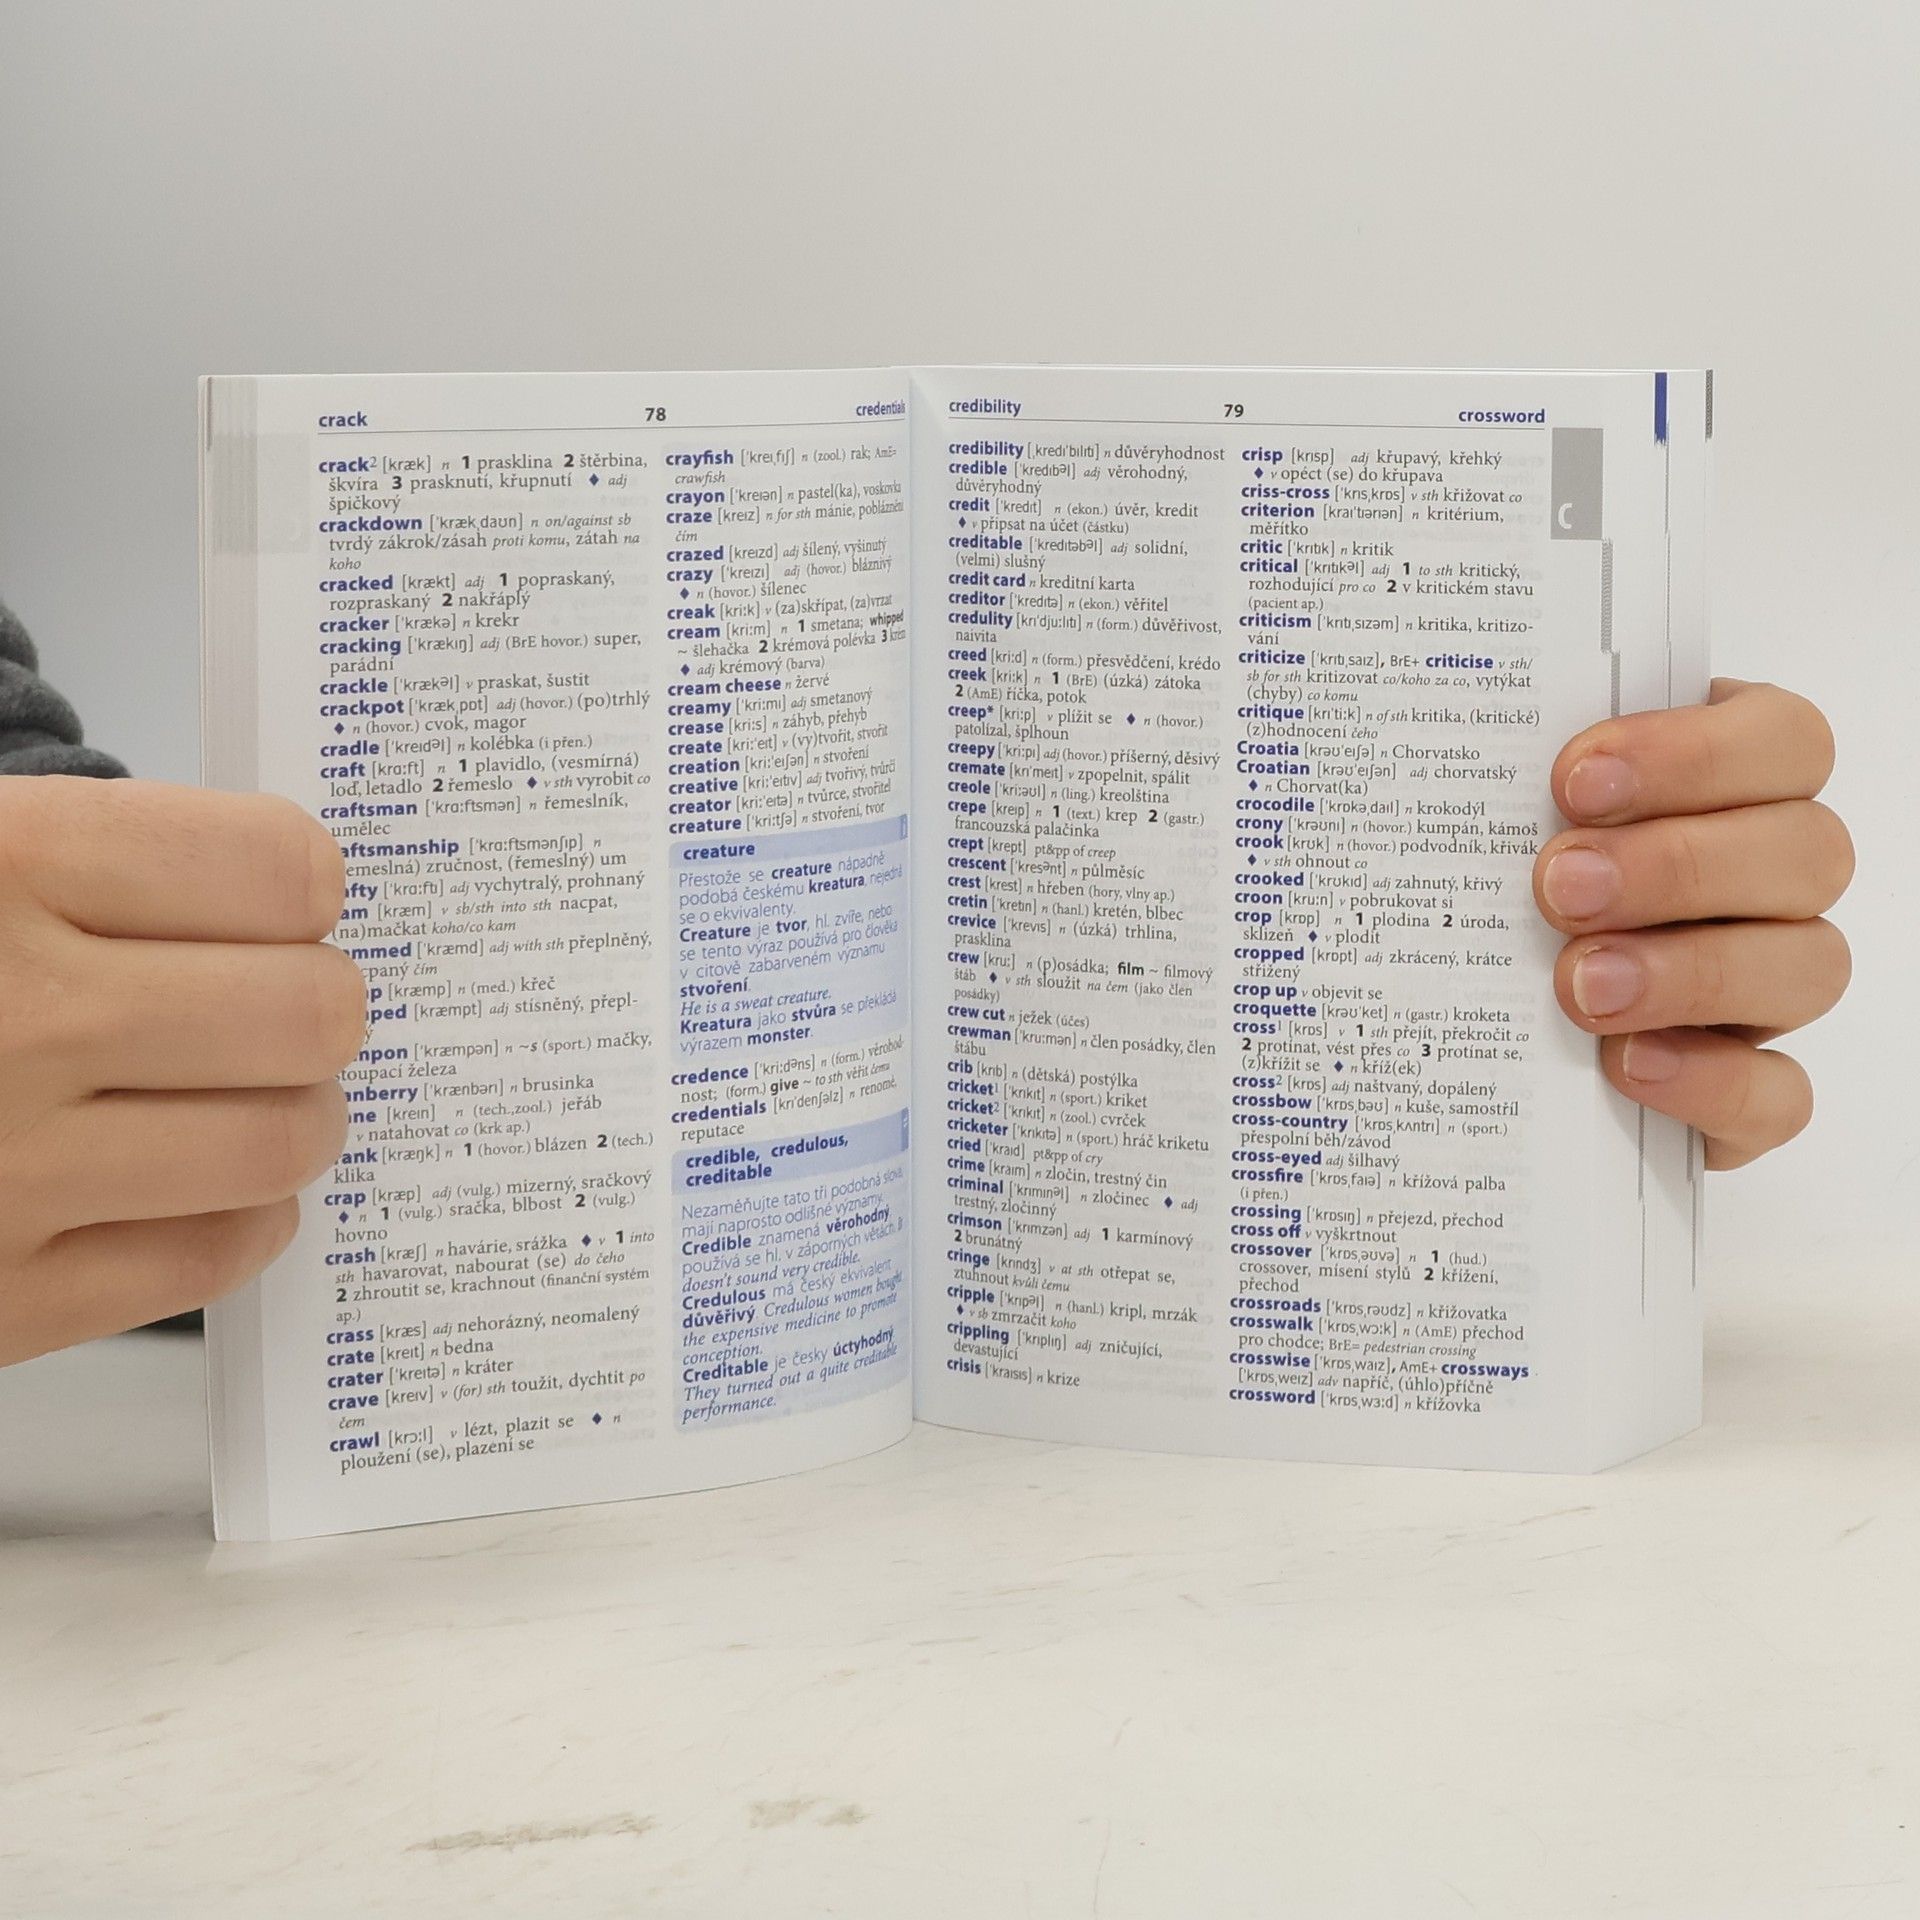 crack 78 credentials
crack² [kræk] n 1 prasklina 2 štěrbina,
škvíra 3 prasknutí, křupnutí ♦ adj
špičkový
crackdown [ˈkrækˌdaun] n on/against sb
tvrdý zákrok/zásah proti komu, zátah na
koho
cracked [krækt] adj 1 popraskaný,
rozpraskaný 2 nakřáplý
cracker [ˈkrækə] n krekr
cracking [ˈkrækɪŋ] adj (BrE hovor.) super,
parádní
crackle [ˈkrækᵊl] v praskat, šustit
crackpot [ˈkrækˌpɒt] adj (hovor.) (po)trhlý
♦ n (hovor.) cvok, magor
cradle [ˈkreɪdᵊl] n kolébka (i přen.)
craft [krɑːft] n 1 plavidlo, (vesmírná)
loď, letadlo 2 řemeslo ♦ v sth vyrobit co
craftsman [ˈkrɑːftsmən] n řemeslník,
umělec
aftsmanship [ˈkrɑːftsmənʃɪp] n
emeslná) zručnost, (řemeslný) um
afty [ˈkrɑːftɪ] adj vychytralý, prohnaný
am [kræm] v sb/sth into sth nacpat,
(na)mačkat koho/co kam
ammed [ˈkræmd] adj with sth přeplněný,
cpaný čím
mp [kræmp] n (med.) křeč
mped [kræmpt] adj stísněný, přepl-
ý
mpon [ˈkræmpən] n ~s (sport.) mačky,
stoupací železa
anberry [ˈkrænbərɪ] n brusinka
ane [kreɪn] n (tech.,zool.) jeřáb
v natahovat co (krk ap.)
rank [kræŋk] n 1 (hovor.) blázen 2 (tech.)
klika
crap [kræp] adj (vulg.) mizerný, sračkový
♦ n 1 (vulg.) sračka, blbost 2 (vulg.)
hovno
crash [kræʃ] n havárie, srážka ♦ v 1 into
sth havarovat, nabourat (se) do čeho
2 zhroutit se, krachnout (finanční systém
ap.)
crass [kræs] adj nehorázný, neomalený
crate [kreɪt] n bedna
crater [ˈkreɪtə] n kráter
crave [kreɪv] v (for) sth toužit, dychtit po
čem
crawl [krɔːl] v lézt, plazit se ♦ n
ploužení (se), plazení se
crayfish [ˈkreɪˌfɪʃ] n (zool.) rak; AmE=
crawfish
crayon [ˈkreɪən] n pastel(ka), voskovka
craze [kreɪz] n for sth mánie, pobláznění
čím
crazed [kreɪzd] adj šílený, vyšinutý
crazy [ˈkreɪzɪ] adj (hovor.) bláznivý
♦ n (hovor.) šílenec
creak [kriːk] v (za)skřípat, (za)vrzat
cream [kriːm] n 1 smetana; whipped
~ šlehačka 2 krémová polévka 3 krém
♦ adj krémový (barva)
cream cheese n žervé
creamy [ˈkriːmɪ] adj smetanový
crease [kriːs] n záhyb, přehyb
create [kriːˈeɪt] v (vy)tvořit, stvořit
creation [kriːˈeɪʃən] n stvoření
creative [kriːˈeɪtɪv] adj tvořivý, tvůrčí
creator [kriːˈeɪtə] n tvůrce, stvořitel
creature [ˈkriːtʃə] n stvoření, tvor
creature
Přestože se creature nápadně
podobá českému kreatura, nejedná
se o ekvivalenty.
Creature je tvor, hl. zvíře, nebo
se tento výraz používá pro člověka
v citově zabarveném významu
stvoření.
He is a sweat creature.
Kreatura jako stvůra se překládá
výrazem monster.
credence [ˈkriːdəns] n (form.) věrohod-
nost; (form.) give ~ to sth věřit čemu
credentials [krɪˈdenʃəlz] n renomé,
reputace
credible, credulous,
creditable
Nezaměňujte tato tři podobná slova,
mají naprosto odlišné významy.
Credible znamená věrohodný,
používá se hl. v záporných větách.
doesn't sound very credible.
Credulous má český ekvivalent
důvěřivý. Credulous women bought
the expensive medicine to promote
conception.
Creditable je česky úctyhodný.
They turned out a quite creditable
performance.
credibility 79 crossword
credibility [ˌkredɪˈbɪlɪtɪ] n důvěryhodnost
credible [ˈkredɪbᵊl] adj věrohodný,
důvěryhodný
credit [ˈkredɪt] n (ekon.) úvěr, kredit
♦ v připsat na účet (částku)
creditable [ˈkredɪtəbᵊl] adj solidní,
(velmi) slušný
credit card n kreditní karta
creditor [ˈkredɪtə] n (ekon.) věřitel
credulity [krɪˈdjuːlɪtɪ] n (form.) důvěřivost,
naivita
creed [kriːd] n (form.) přesvědčení, krédo
creek [kriːk] n 1 (BrE) (úzká) zátoka
2 (AmE) říčka, potok
creep* [kriːp] v plížit se ♦ n (hovor.)
patolízal, šplhoun
creepy [ˈkriːpɪ] adj (hovor.) příšerný, děsivý
cremate [krɪˈmeɪt] v zpopelnit, spálit
creole [ˈkriːəʊl] n (ling.) kreolština
crepe [kreɪp] n 1 (text.) krep 2 (gastr.)
francouzská palačinka
crept [krept] pt&pp of creep
crescent [ˈkresənt] n půlměsíc
crest [krest] n hřeben (hory, vlny ap.)
cretin [ˈkretɪn] n (hanl.) kretén, blbec
crevice [ˈkrevɪs] n (úzká) trhlina,
prasklina
crew [kruː] n (p)osádka; film ~ filmový
štáb ♦ v sth sloužit na čem (jako člen
posádky)
crew cut n ježek (účes)
crewman [ˈkruːmən] n člen posádky, člen
štábu
crib [krɪb] n (dětská) postýlka
cricket¹ [ˈkrɪkɪt] n (sport.) kriket
cricket² [ˈkrɪkɪt] n (zool.) cvrček
cricketer [ˈkrɪkɪtə] n (sport.) hráč kriketu
cried [ˈkraɪd] pt&pp of cry
crime [kraɪm] n zločin, trestný čin
criminal [ˈkrɪmɪnᵊl] n zločinec ♦ adj
trestný, zločinný
crimson [ˈkrɪmzən] adj 1 karmínový
2 brunátný
cringe [krɪndʒ] v at sth otřepat se,
ztuhnout kvůli čemu
cripple [ˈkrɪpᵊl] n (hanl.) kripl, mrzák
♦ v sb zmrzačit koho
crippling [ˈkrɪplɪŋ] adj zničující,
devastující
crisis [ˈkraɪsɪs] n krize
crisp [krɪsp] adj křupavý, křehký
♦ v opéct (se) do křupava
criss-cross [ˈkrɪsˌkrɒs] v sth křižovat co
criterion [kraɪˈtɪərɪən] n kritérium,
měřítko
critic [ˈkrɪtɪk] n kritik
critical [ˈkrɪtɪkᵊl] adj 1 to sth kritický,
rozhodující pro co 2 v kritickém stavu
(pacient ap.)
criticism [ˈkrɪtɪˌsɪzəm] n kritika, kritizo-
vání
criticize [ˈkrɪtɪˌsaɪz], BrE+ criticise v sth/
sb for sth kritizovat co/koho za co, vytýkat
(chyby) co komu
critique [krɪˈtiːk] n of sth kritika, (kritické)
(z)hodnocení čeho
Croatia [krəʊˈeɪʃə] n Chorvatsko
Croatian [krəʊˈeɪʃən] adj chorvatský
♦ n Chorvat(ka)
crocodile [ˈkrɒkəˌdaɪl] n krokodýl
crony [ˈkrəʊnɪ] n (hovor.) kumpán, kámoš
crook [krʊk] n (hovor.) podvodník, křivák
♦ v sth ohnout co
crooked [ˈkrʊkɪd] adj zahnutý, křivý
croon [kruːn] v pobrukovat si
crop [krɒp] n 1 plodina 2 úroda,
sklizeň ♦ v plodit
cropped [krɒpt] adj zkrácený, krátce
střižený
crop up v objevit se
croquette [krəʊˈket] n (gastr.) kroketa
cross¹ [krɒs] v 1 sth přejít, překročit co
2 protínat, vést přes co 3 protínat se,
(z)křížit se ♦ n kříž(ek)
cross² [krɒs] adj naštvaný, dopálený
crossbow [ˈkrɒsˌbəʊ] n kuše, samostříl
cross-country [ˈkrɒsˌkʌntrɪ] n (sport.)
přespolní běh/závod
cross-eyed adj šilhavý
crossfire [ˈkrɒsˌfaɪə] n křížová palba
(i přen.)
crossing [ˈkrɒsɪŋ] n přejezd, přechod
cross off v vyškrtnout
crossover [ˈkrɒsˌəʊvə] n 1 (hud.)
crossover, mísení stylů 2 křížení,
přechod
crossroads [ˈkrɒsˌrəʊdz] n křižovatka
crosswalk [ˈkrɒsˌwɔːk] n (AmE) přechod
pro chodce; BrE= pedestrian crossing
crosswise [ˈkrɒsˌwaɪz], AmE+ crossways
[ˈkrɒsˌweɪz] adv napříč, (úhlo)příčně
crossword [ˈkrɒsˌwɜːd] n křížovka
C